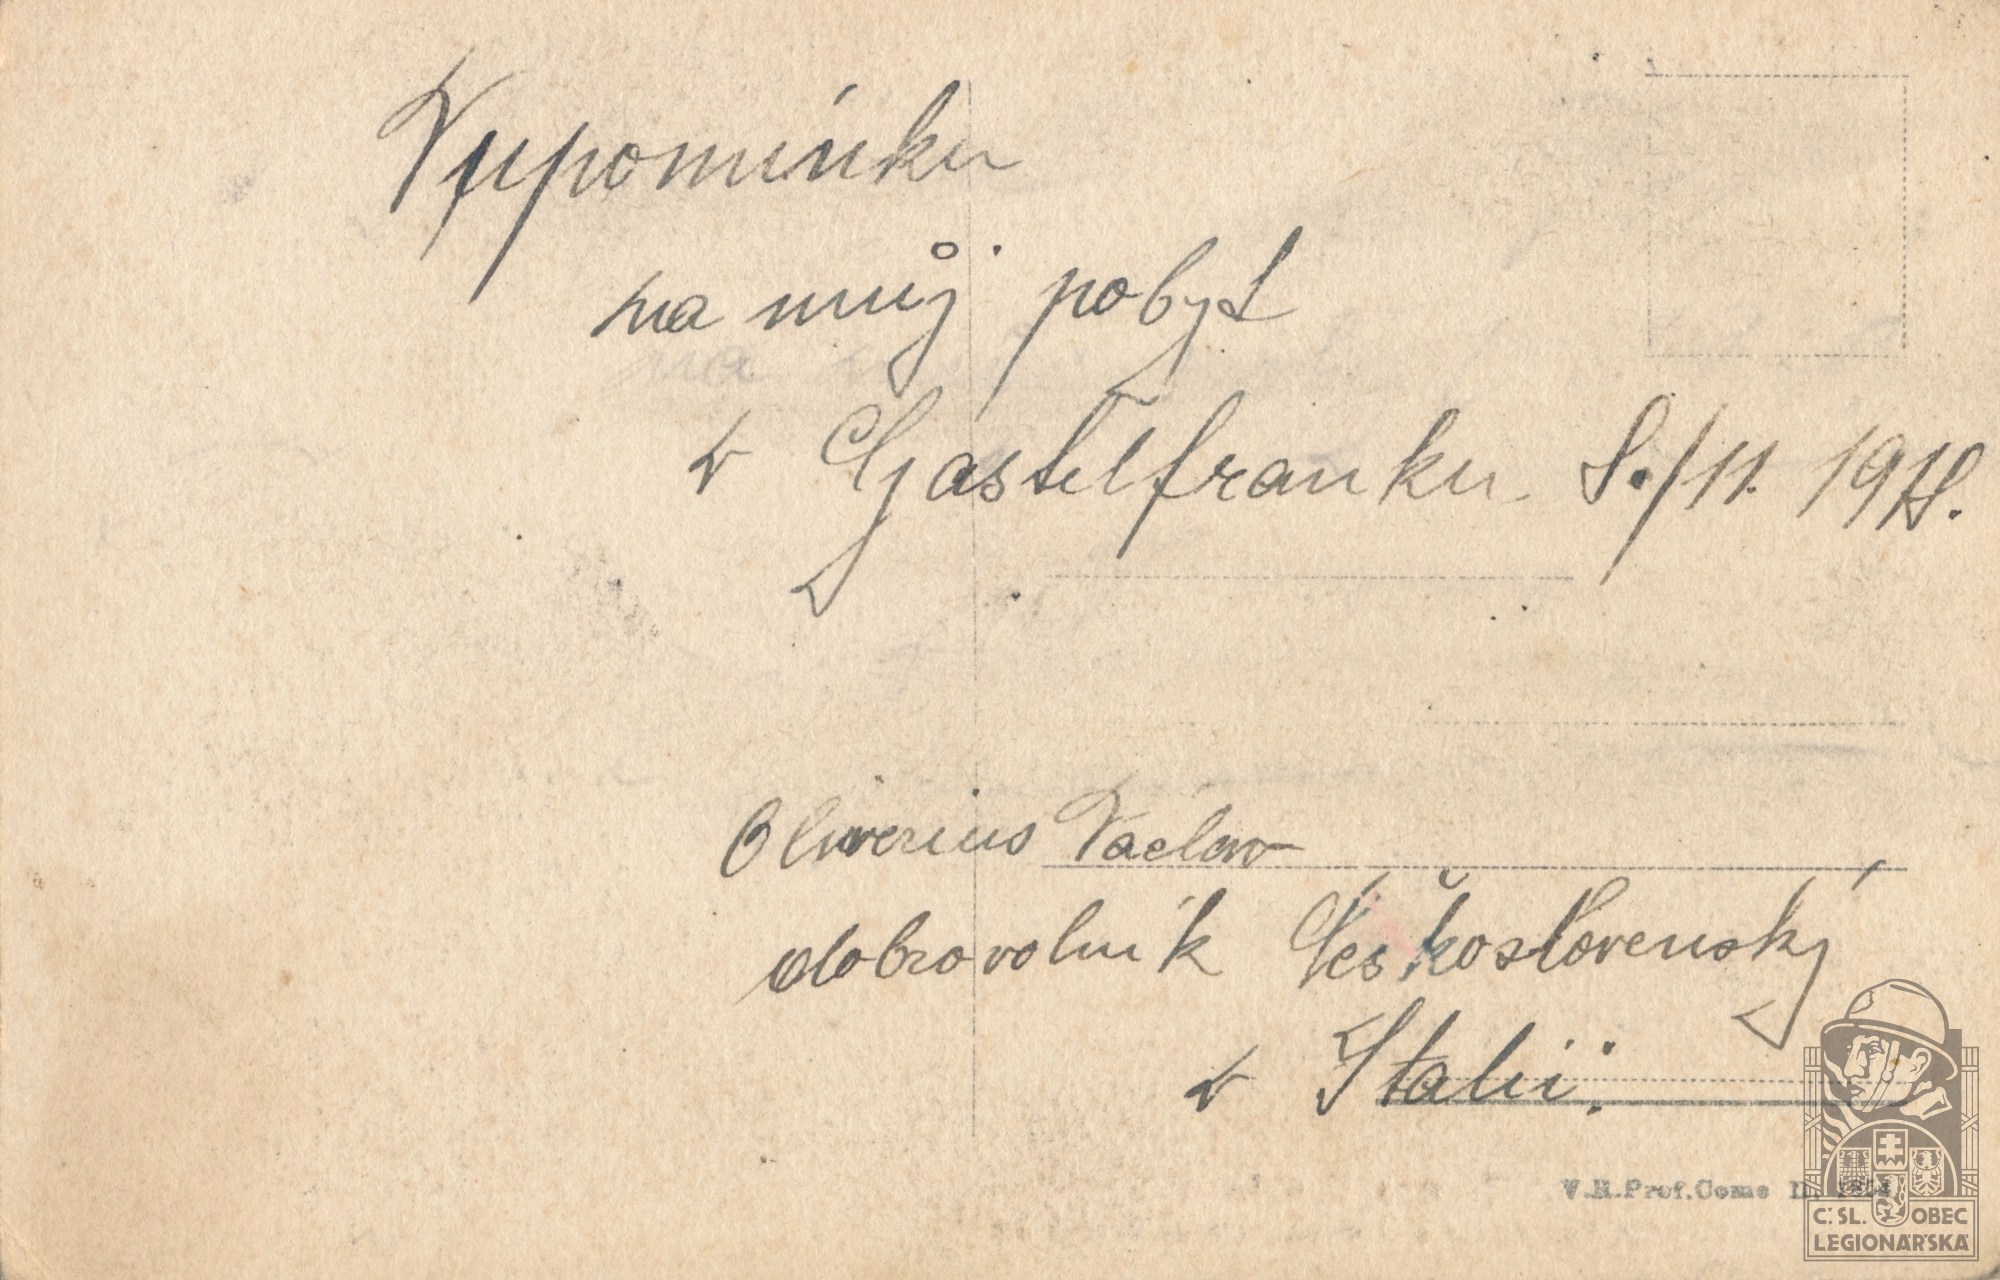 Vzpomínku
na můj pobyt
v Gastelfranku 8./11. 1918.
Oliverius Václav
dobrovolník Československý
v Italii.
V.R.Prof.Como
Č.SL. OBEC
LEGIONÁŘSKÁ